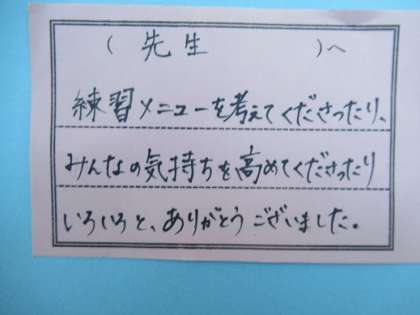 （先生　　　）へ
練習メニューを考えてくださったり、
みんなの気持ちを高めてくださったり
いろいろと、ありがとうございました。